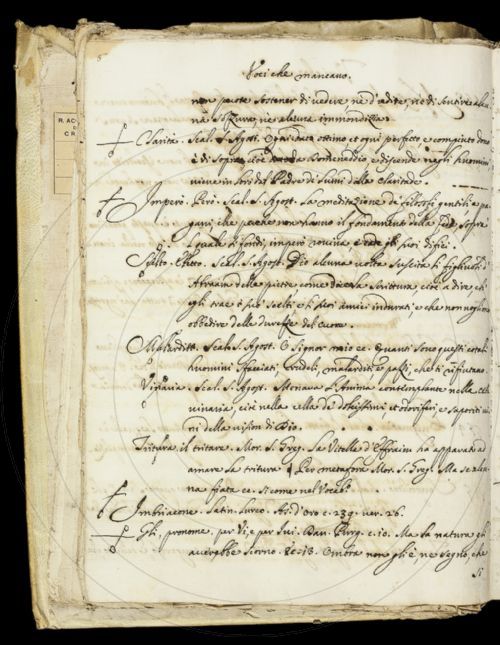 Voci che mancano.
non puote sostener di vedere, nè d'udire, nè di sentire alcu
na sozzura, nè alcuna immondizia.
Clarità. Scal. S. Agost. Ogni dato ottimo, et ogni perfetto e compiuto dono
è di sopra, cioè da Domeneddio, e discende negli huomini
viene in Padre di lumi della claritade.
Imperò. Però. Scal. S. Agost. La meditazione de filosofi gentili e pa
gani, che non hanno il fondamento della fede sopra
l quale si fondi, imperò rovina e cade gli lor difici.
Scelto. Eletto. Scal. S. Agost. Dio alcuna volta suscita i figliuoli d'
Abraam delle pietre, come dice la Scrittura, cioè a dire, ch'
gli trae i più scelti e i più amici indurati e che non voglono
obbedire delle durezze del cuore.
Maladditt. Scal. S. Agost. O Signor mio ec. Quanti sono questi cotali
huomini sfacciati, crudeli, malarditi e pazzi, che ti rifiutano.
Vinaria. Scal. S. Agost. Menava l'Anima contemplante nella cella
vinaria, cioè nella cella de dolcissimi et odoriferi e saporiti vi
ni della vision di Dio.
Tritura il tritare. Mor. S. Greg. La Vitella d'Effraim ha apparato ad
amare la tritura ¶ Per metafora Mor. S. Greg. Ma se alcu
na fiata ec. si come nel Vocab.
Imbriacone. Latin. Lurco. Ar. d'oro c. 239. ver. 26.
Gli, pronome, per Vi, e per Ivi. Dan. Purg. c. 10. Ma la natura gli
averebbe scorno. Et 13. Ombra non gli è, nè segno, che
Si
R. AC
CR